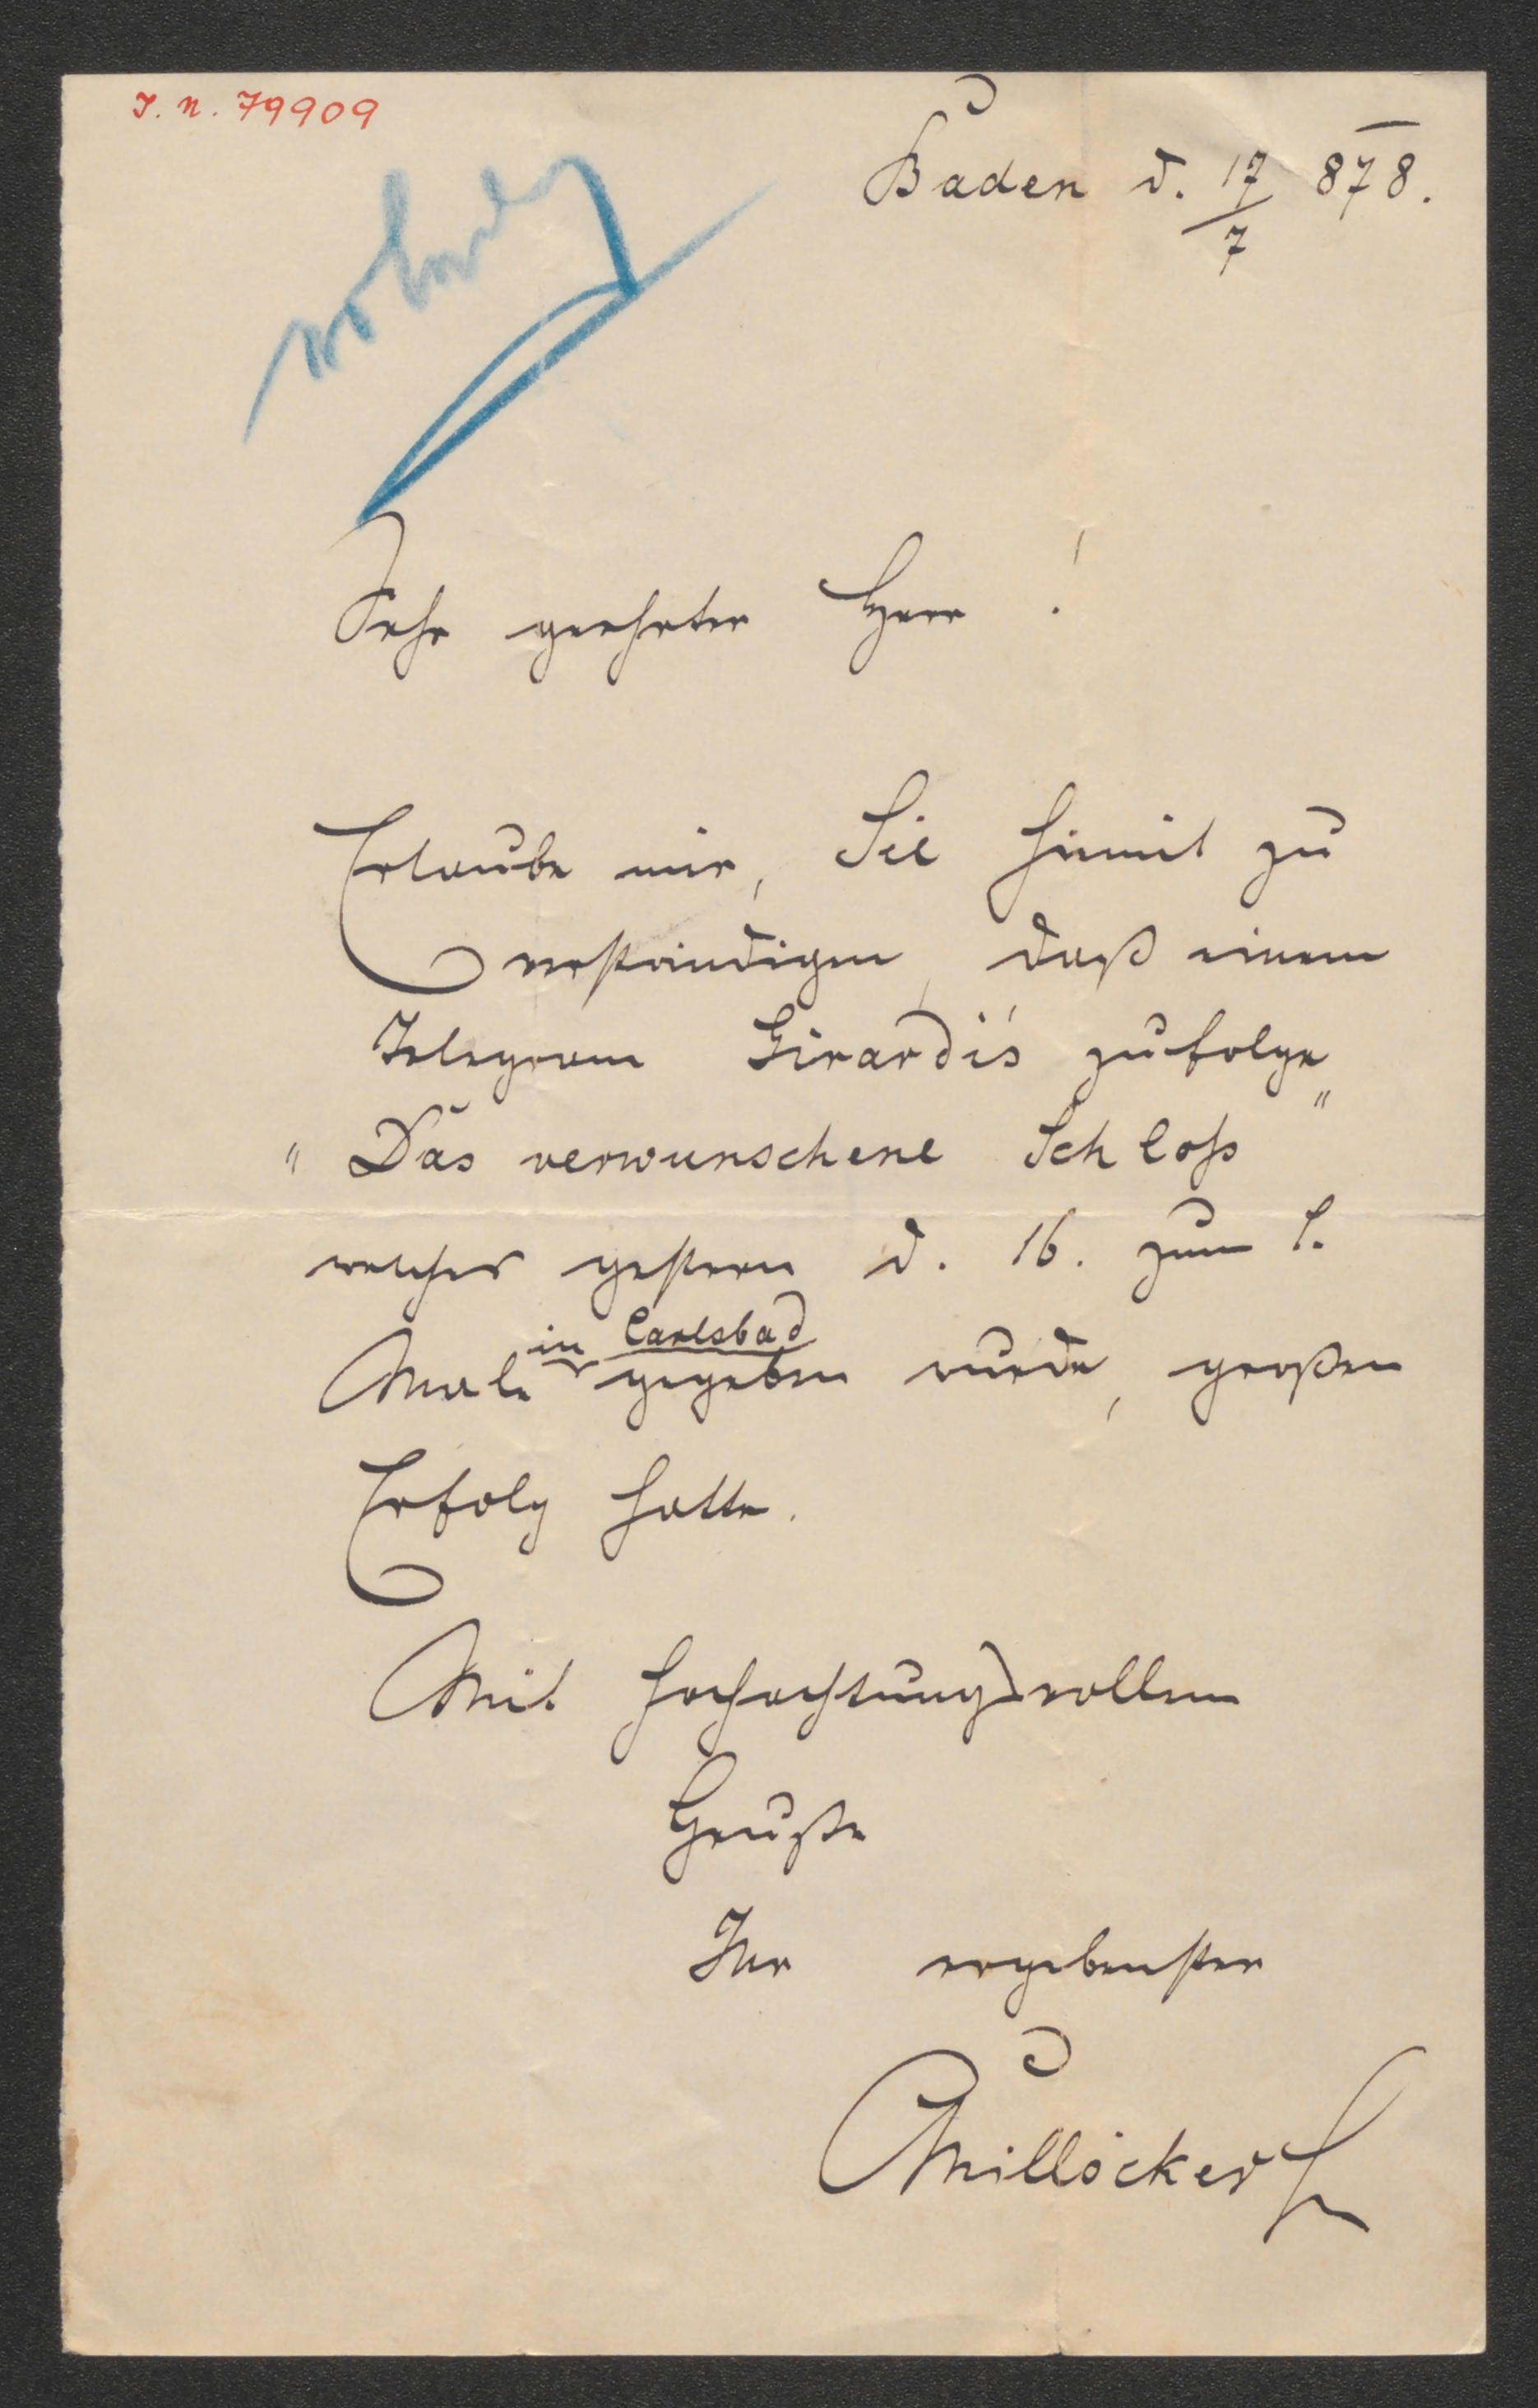 J. N. 79909
Baden d. 17/7 878.
Sehr geehrter Herr !
Erlaube mir, Sie hiemit zu
verständigen, daß einem
Telegram Girardi's zufolge
"Das verwunschene Schloß"
welches gestern d. 16. zum 1.
Male in Carlsbad gegeben wurde, großen
Erfolg hatte.
Mit hochachtungsvollem
Gruße
Ihr ergebenster
CMillöcker